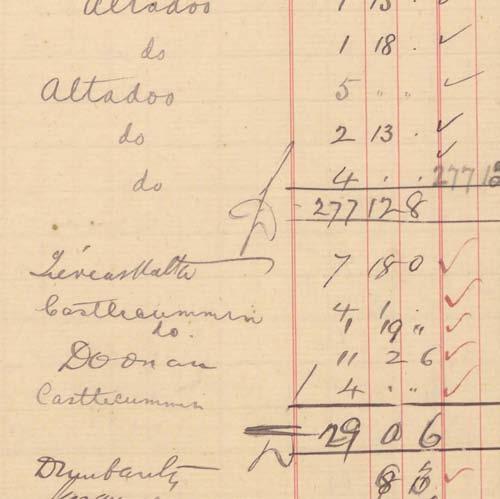 Altadoo 1 13 .
do 1 18 .
Altadoo 5 " "
do 2 13 .
do 4 . . 277 12
277 12 8
7 18 0
Castlecummin 4 1 .
do. 1 19 "
Doonan 11 2 6
Castlecummin 4 " "
29 0 6